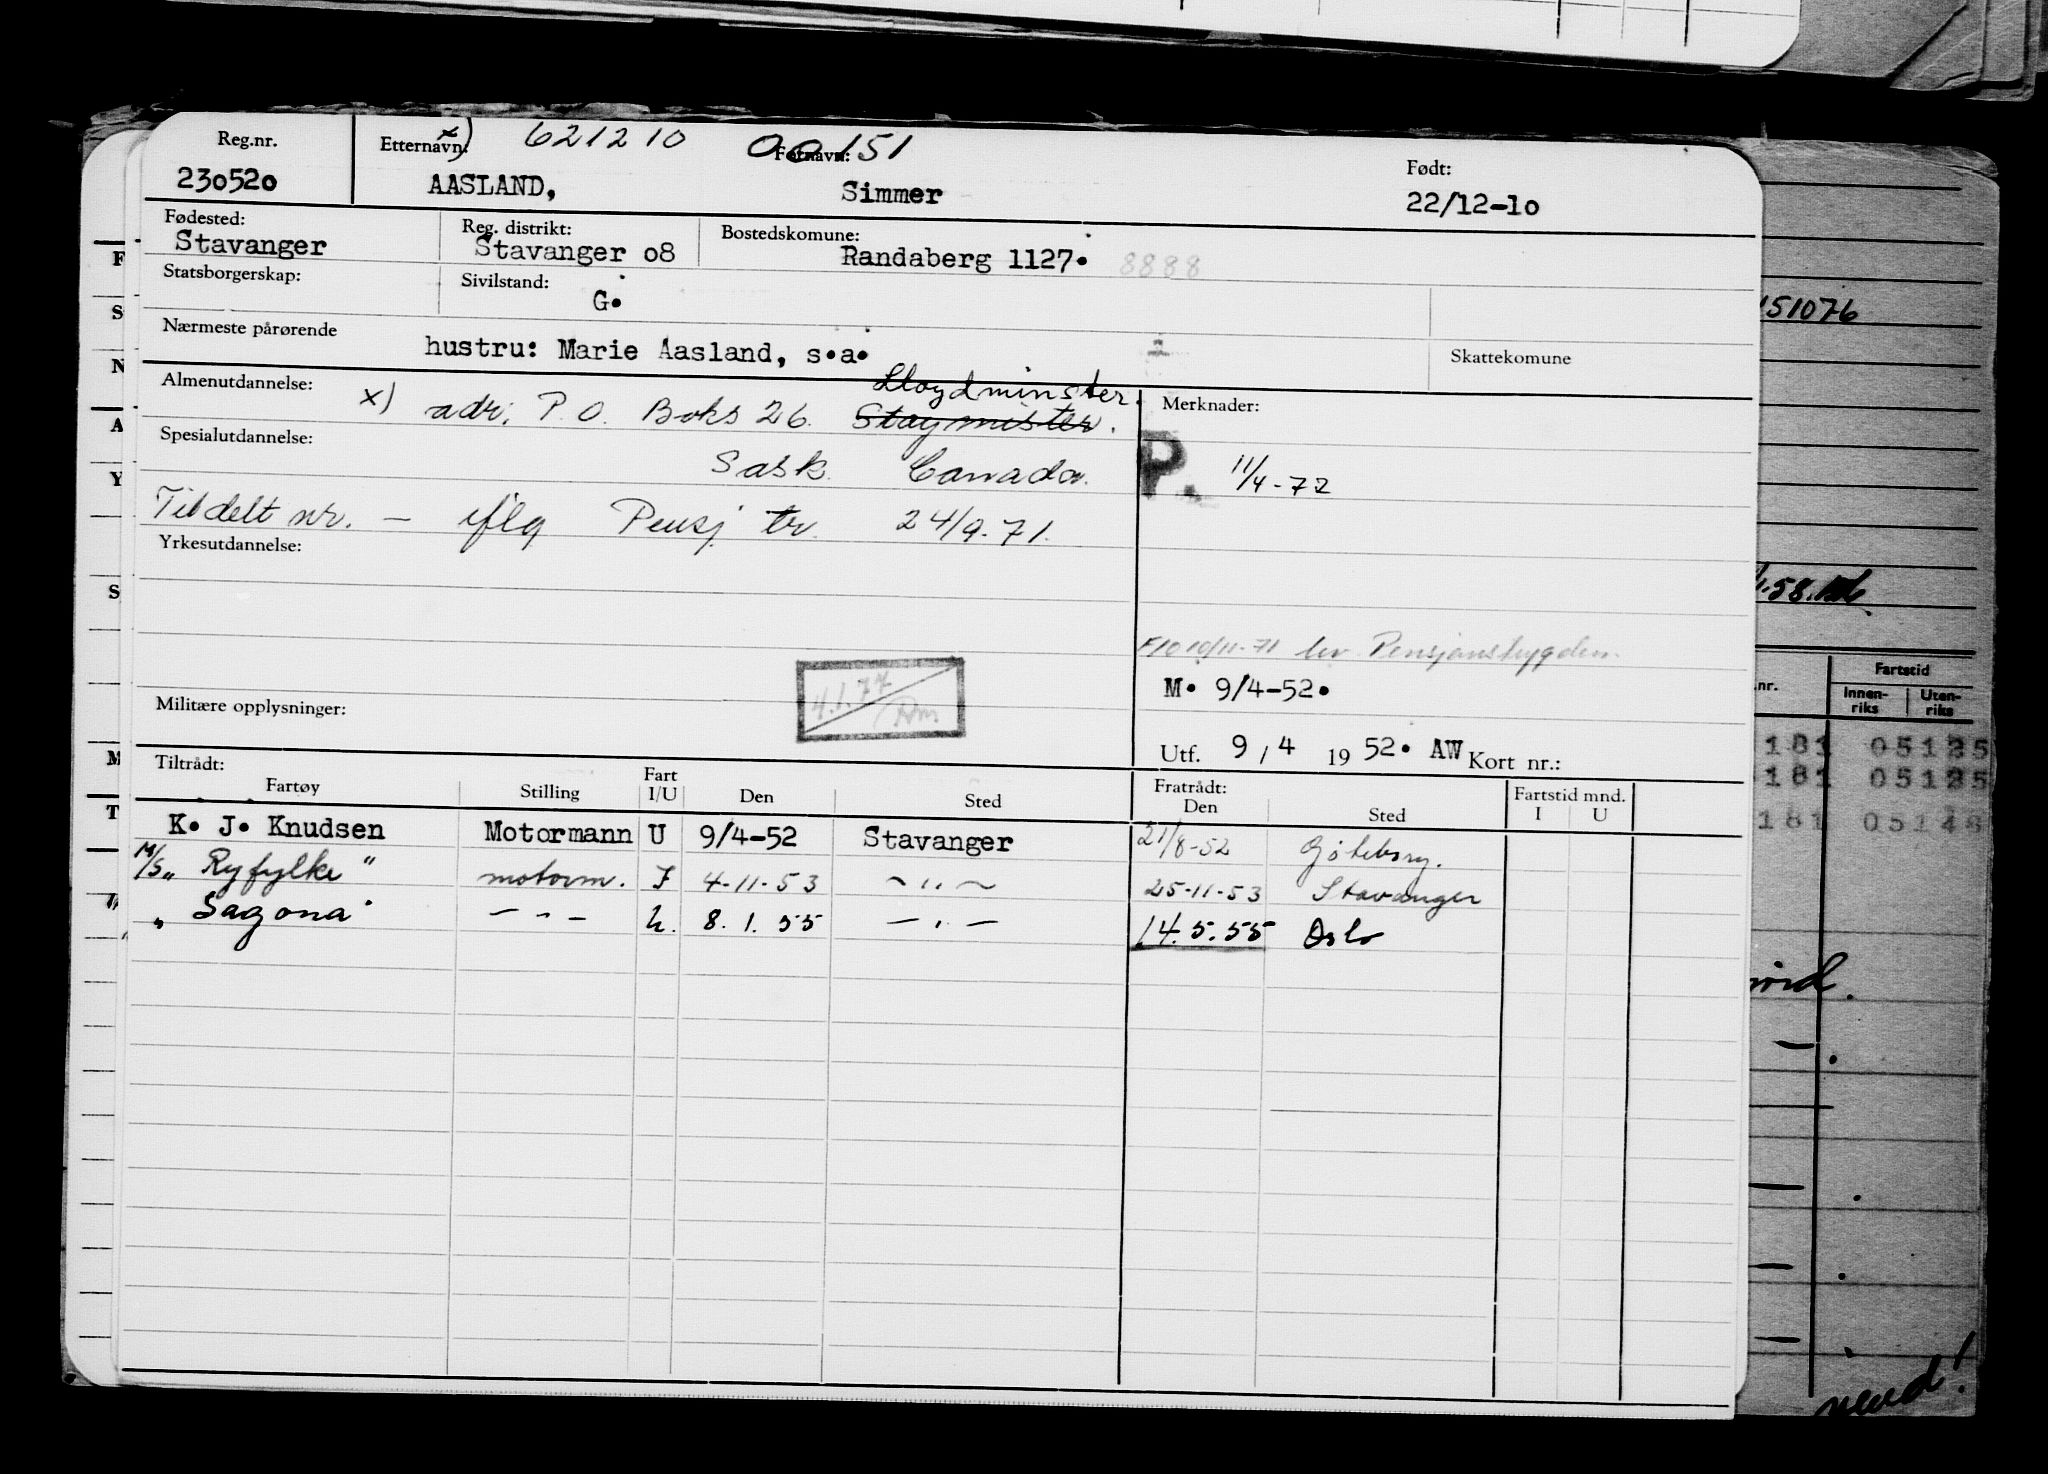 Reg.nr. Etternavn: x) 621210 00151 Fornavn: Født:
230520 AASLAND, Simmer 22/12-10
Fødested: Reg. distrikt: Bostedskomune:
Stavanger Stavanger 08 Randaberg 1127. 8888
Statsborgerskap: Sivilstand:
G.
Nærmeste pårørende
hustru: Marie Aasland, s.a. Skattekomune
Almenutdannelse: Lloydminster. Merknader:
x) adr. P.O. Boks 26. Staymister.
Spesialutdannelse:
Sask. Canada. P. 11/4-72
Tildelt nr. — iflg Pensj tr. 24/9.71.
Yrkesutdannelse:
10/11-71 Pensjonstrygden.
4.1.77
M. 9/4-52.
Militære opplysninger:
Utf. 9/4 1952. AW Kort nr.:
Tiltrådt: Fratrådt: Fartstid mnd.
Fartøy Stilling Fart I/U Den Sted Den Sted I U
K. J. Knudsen Motormann U 9/4-52 Stavanger 21/8-52 Göteborg.
M/S "Ryfylke" motorm. I 4-11-53 — " — 25-11-53 Stavanger
" Sagona" — " — U. 8.1.55 — " — 14.5.55 Oslo
F
S
N
A
Y
S
M
T
151076
nr. Fartstid
Innen-riks Uten-riks
181 05125
181 05125
181 05148